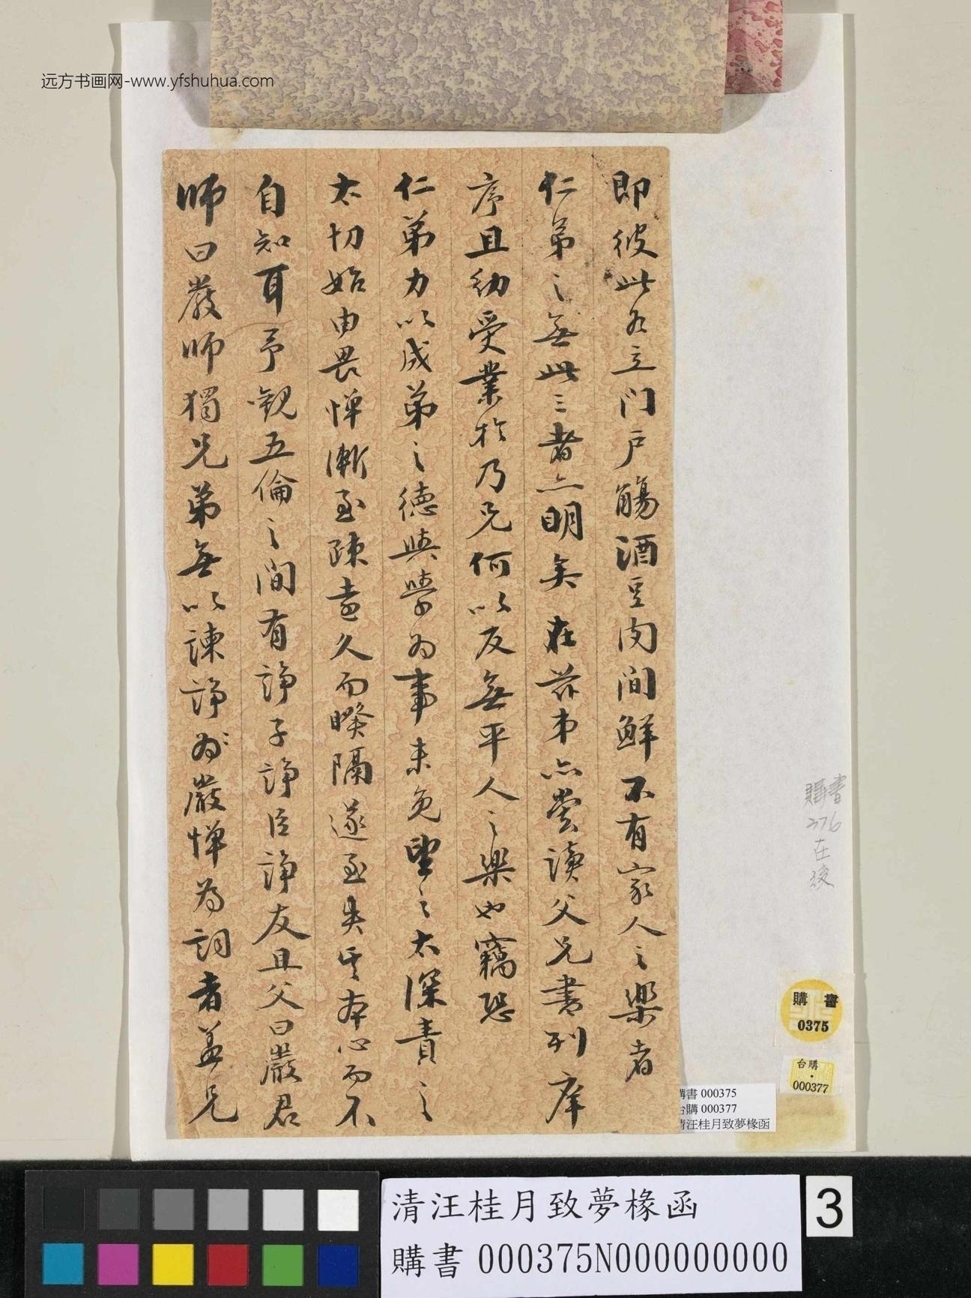 远方书画网-www.yfshuhua.com
即彼此各立门户觴酒豆肉间鮮不有家人之樂者
仁弟之無此三者亦明矣在茲弟亦嘗讀父兄書列庠
序且幼受業於乃兄何以反無平人之樂也竊恐
仁弟力以成弟之德與學为事未免望之太深責之
太切始由畏惮漸至疎遠久而暌隔遂至失其本心而不
自知耳予觀五倫之间有諍子諍臣諍友且父曰嚴君
師曰嚴師獨兄弟無以諫諍嚴惮為詞者盖兄
購書
376
在後
購書
0375
台購
000377
購書 000375
台購 000377
清汪桂月致夢椽函
清汪桂月致夢椽函
購書 000375N000000000
3